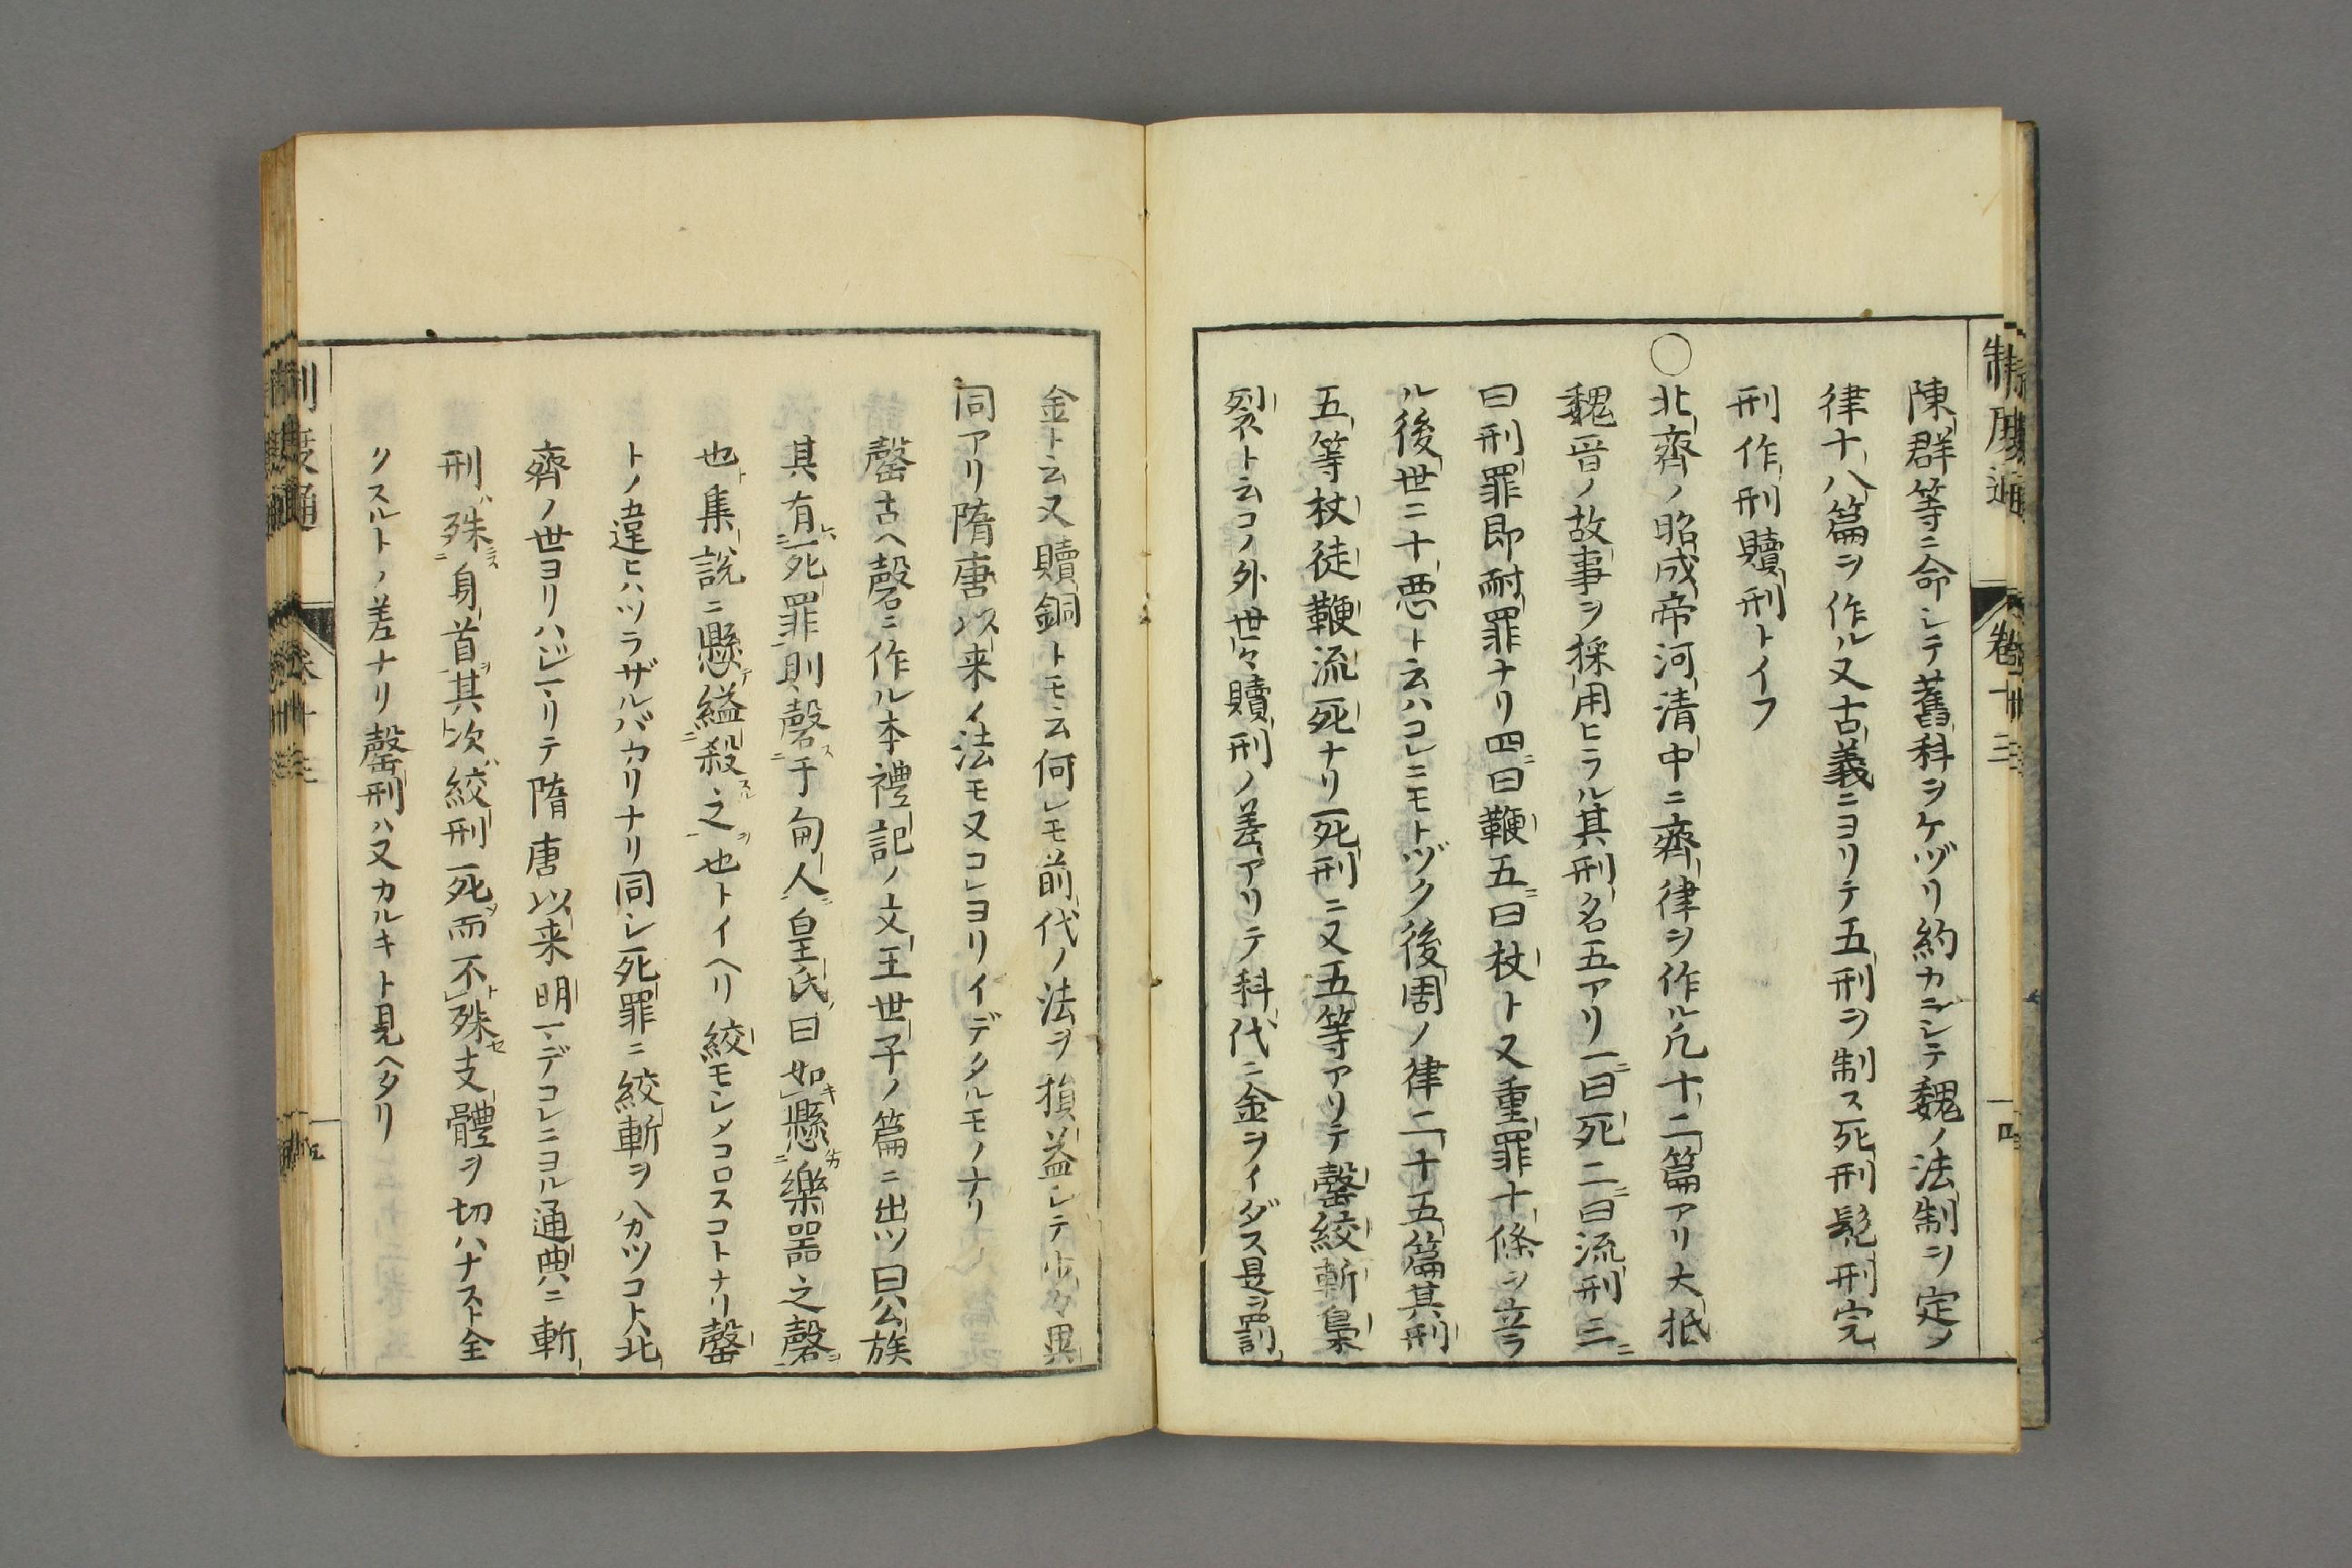 陳群等ニ命シテ舊科ヲケヅリ約カニシテ魏ノ法制ヲ定メ
律十八篇ヲ作ル又古義ニヨリテ五刑ヲ制ス死刑髡刑完
刑作刑贖刑トイフ
○北齊ノ昭成帝河清中ニ齊律ヲ作ル凡十二篇アリ大抵
魏晋ノ故事ヲ採用ヒラル其刑名五アリ一ニ曰死二ニ曰流刑三ニ
曰刑罪即耐罪ナリ四ニ曰鞭五ニ曰杖ト又重罪十條ヲ立ラ
ル後世ニ十悪ト云ハコレニモトヅク後周ノ律二十五篇其刑
五等杖徒鞭流死ナリ死刑ニ又五等アリテ罄絞斬梟
裂ト云コノ外世々贖刑ノ差アリテ科代ニ金ヲイダス是ヲ罰
金ト云又贖銅トモ云何レモ前代ノ法ヲ損益シテ少々異
同アリ隋唐以来ノ法モ又コレヨリイデタルモノナリ
罄古ヘ磬ニ作ル本禮記ノ文王世子ノ篇ニ出ツ曰公族
其有死罪則磬于甸人皇氏曰如懸樂器之磬
也集說ニ懸縊殺之也トイヘリ絞モシメコロスコトナリ罄
トノ違ヒハツラザルバカリナリ同シ死罪ニ絞斬ヲハカツコト北
齊ノ世ヨリハジマリテ隋唐以来明マデコレニヨル通典ニ斬
刑ハ殊身首其次ハ絞刑死而不殊支體ヲ切ハナスト全
クスルトノ差ナリ罄刑ハ又カルキト見ヘタリ
制度通
卷十三
四